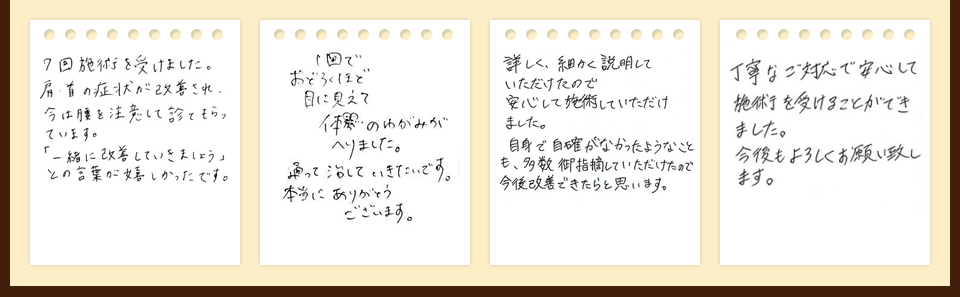 7回施術を受けました。
肩・首の症状が改善され、
今は腰を注意して診てもらっ
ています。
「一緒に改善していきましょう」
との言葉が嬉しかったです。
1回で
おどろくほど
目に見えて
体 のゆがみが
へりました。
通って治していきたいです。
本当にありがとう
ございます。
詳しく、細かく説明して
いただけたので
安心して施術していただけ
ました。
自身で自確がなかったようなこと
も、多数御指摘していただけたので
今後改善できたらと思います。
丁寧なご対応で安心して
施術を受けることができ
ました。
今後もよろしくお願い致し
ます。